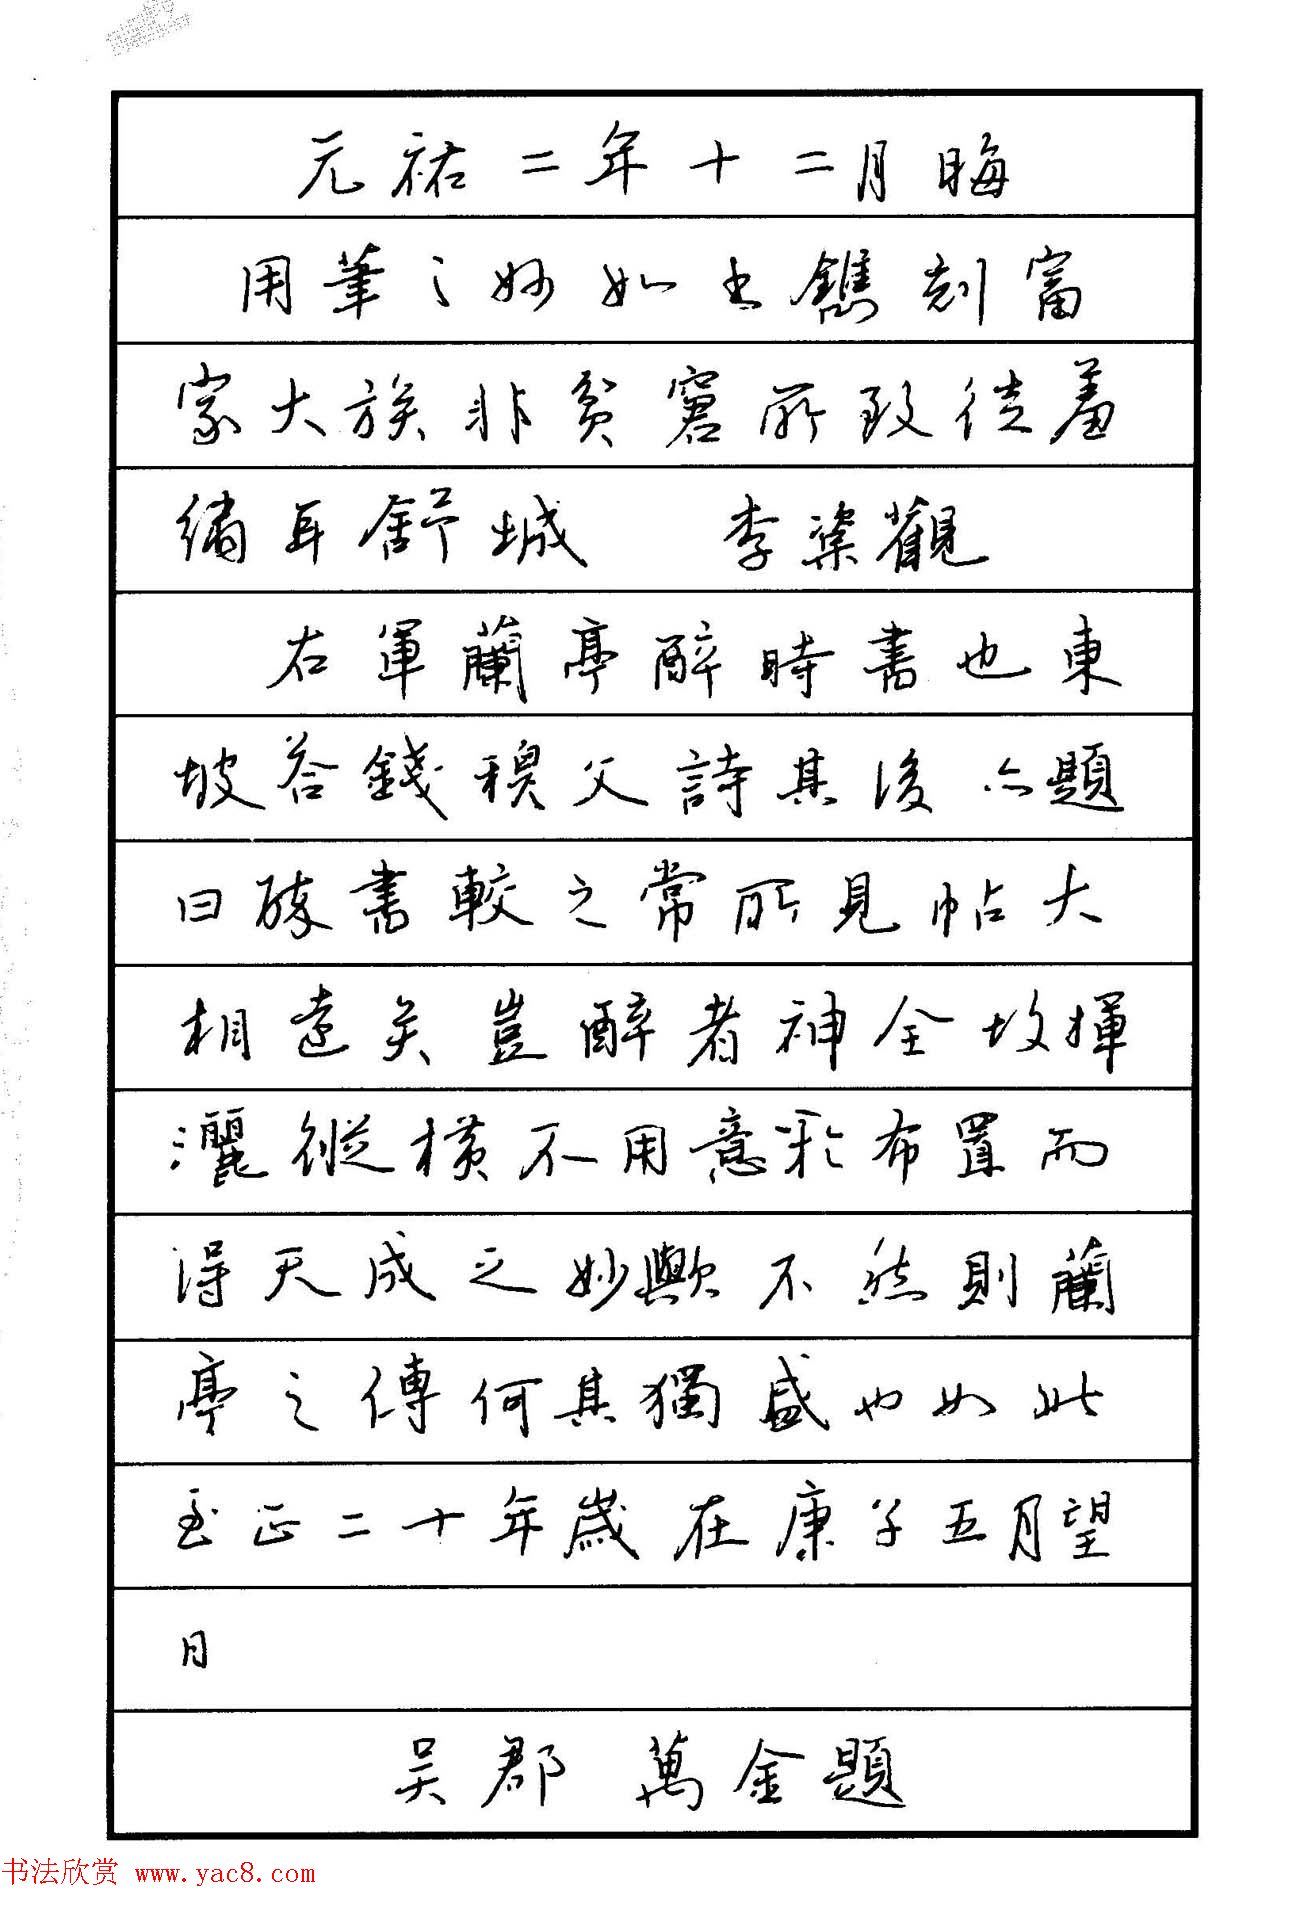 元祐二年十二月晦
用筆之妙如出鐫刻富
家大族非貧窘所致徒羞
縮耳舒城 李楶觀
右軍蘭亭醉時書也東
坡荅錢穆父詩其後亦題
曰醉書較之常所見帖大
相遠矣豈醉者神全故揮
灑縱橫不用意於布置而
得天成之妙歟不然則蘭
亭之傳何其獨盛也如此
至正二十年歲在庚子五月望
日
吳郡 萬金題
书法欣赏 www.yac8.com